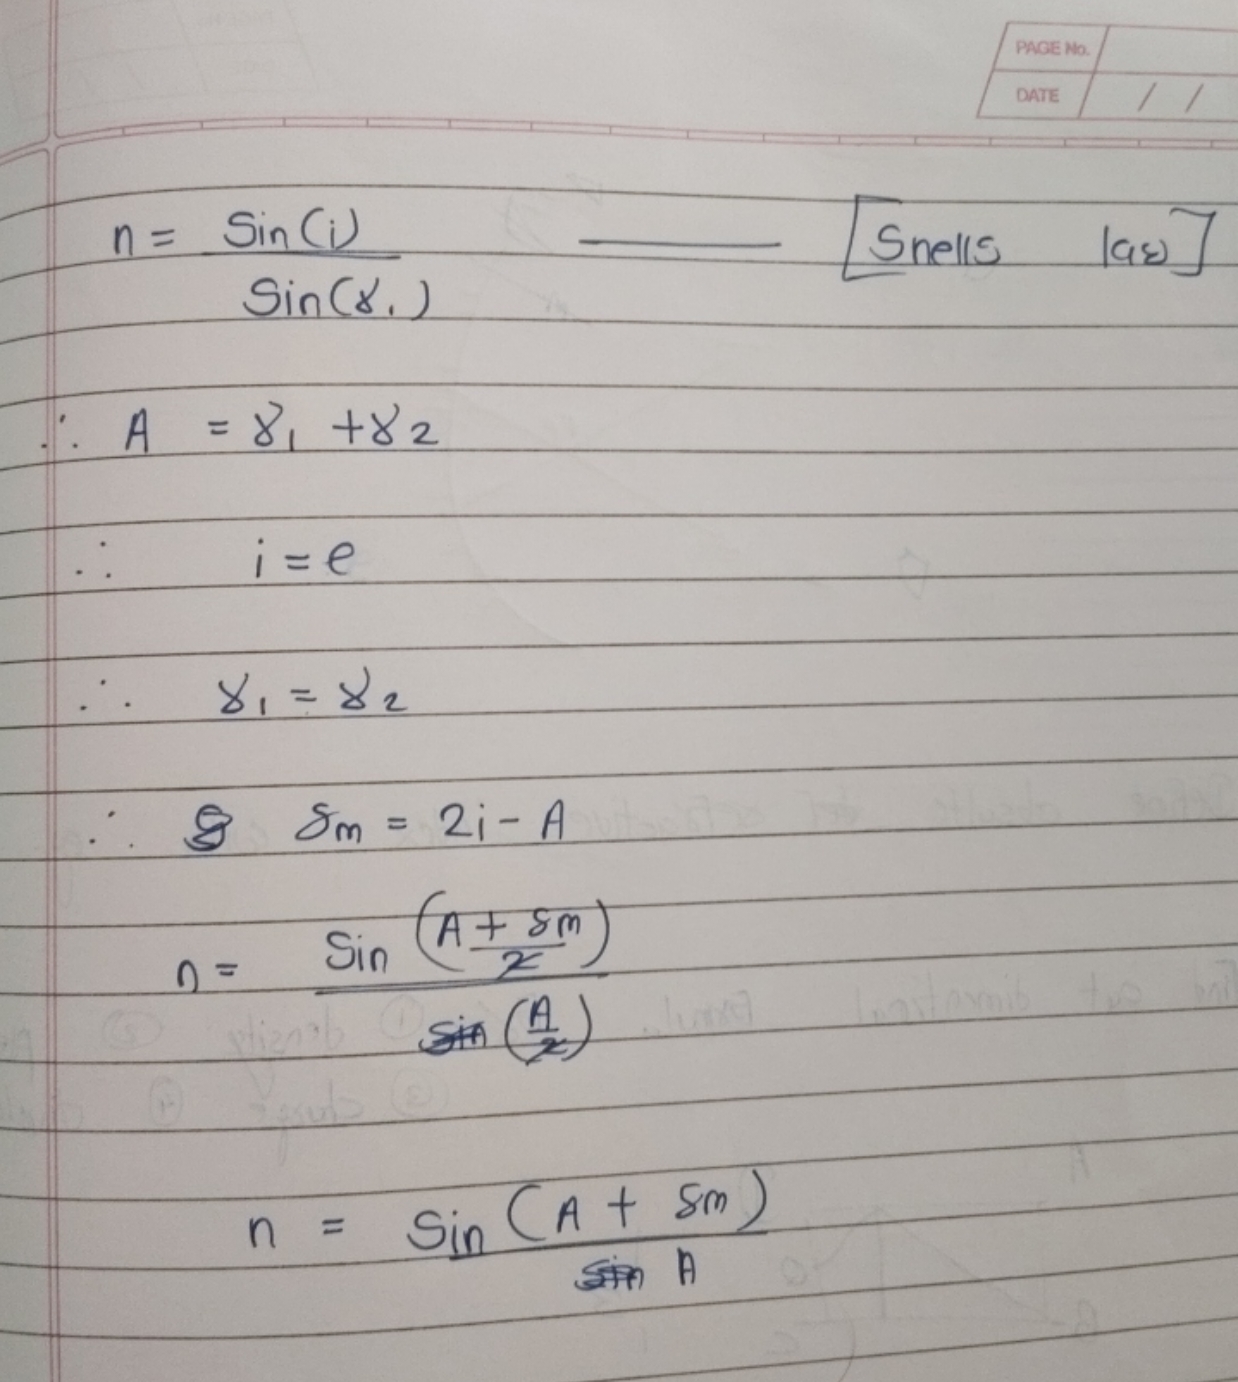 PAGE No.
DATE / /
n = Sin(i) / Sin(r₁) —— [Snells law]
∴ A = r₁ + r₂
∴ i = e
∴ r₁ = r₂
∴ δm = 2i - A
n = Sin (A + δm / 2) / sin (A / 2)
n = Sin (A + δm) / sin A